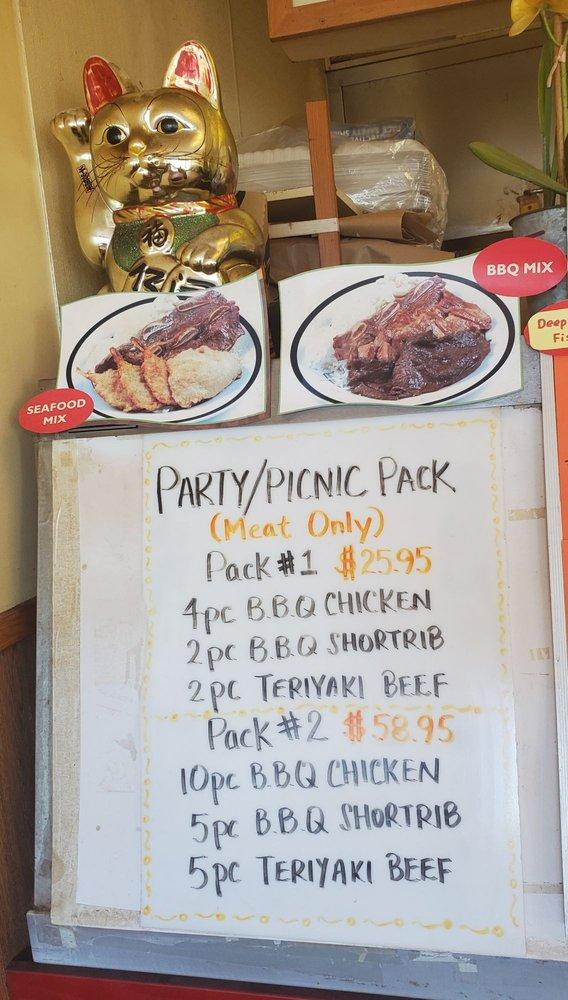 福
BBQ MIX
Deep
Fis
SEAFOOD
MIX
PARTY/PICNIC PACK
(Meat Only)
Pack #1 $25.95
4pc B.B.Q CHICKEN
2pc B.B.Q SHORTRIB
2pc TERIYAKI BEEF
Pack #2 $58.95
10pc B.B.Q CHICKEN
5pc B.B.Q SHORTRIB
5pc TERIYAKI BEEF